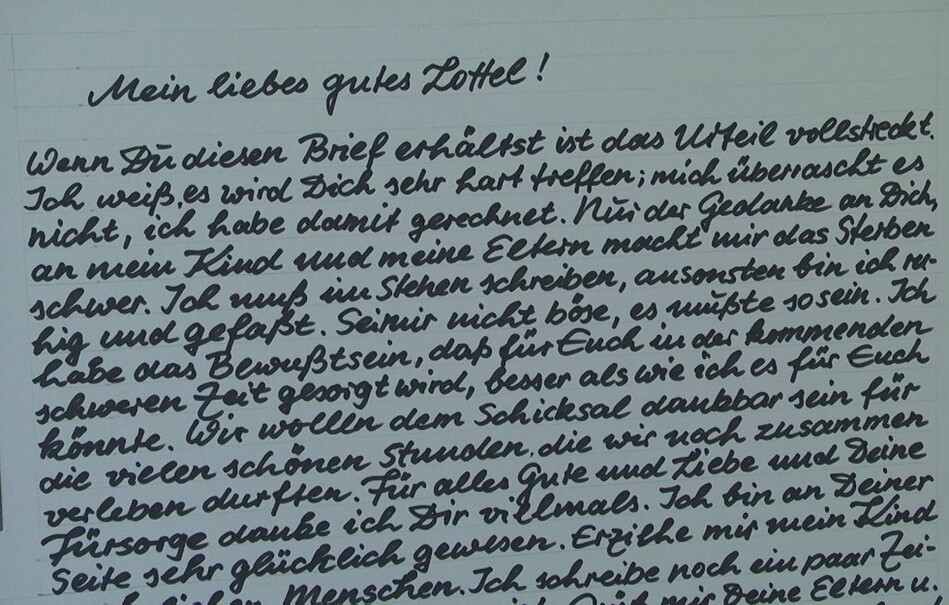 Mein liebes gutes Lottel!
Wenn Du diesen Brief erhältst ist das Urteil vollstreckt.
Ich weiß, es wird Dich sehr hart treffen; mich überrascht es
nicht, ich habe damit gerechnet. Nur der Gedanke an Dich,
an mein Kind und meine Eltern macht mir das Sterben
schwer. Ich muß im Stehen schreiben, ansonsten bin ich ru-
hig und gefaßt. Sei mir nicht böse, es mußte so sein. Ich
habe das Bewußtsein, daß für Euch in der kommenden
schweren Zeit gesorgt wird, besser als wie ich es für Euch
könnte. Wir wollen dem Schicksal dankbar sein für
die vielen schönen Stunden, die wir noch zusammen
verleben durften. Für alles Gute und Liebe und Deine
Fürsorge danke ich Dir vielmals. Ich bin an Deiner
Seite sehr glücklich gewesen. Erziehe mir mein Kind
Menschen. Ich schreibe noch ein paar Zei-
mir Deine Eltern u.